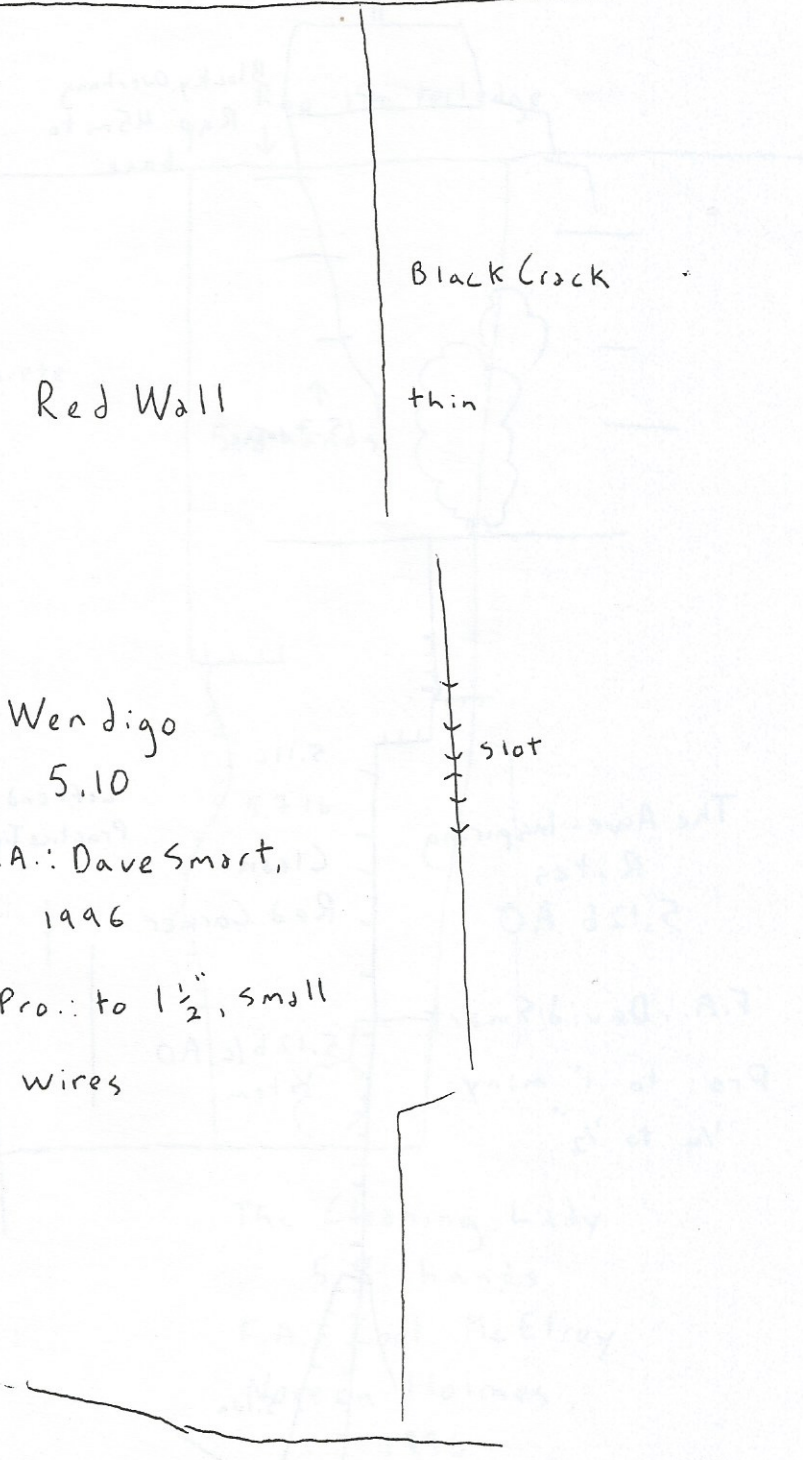 Black Crack
Red Wall
thin
Wendigo
5.10
slot
.A.: Dave Smart,
1996
Pro.: to 1 1/2", small
wires